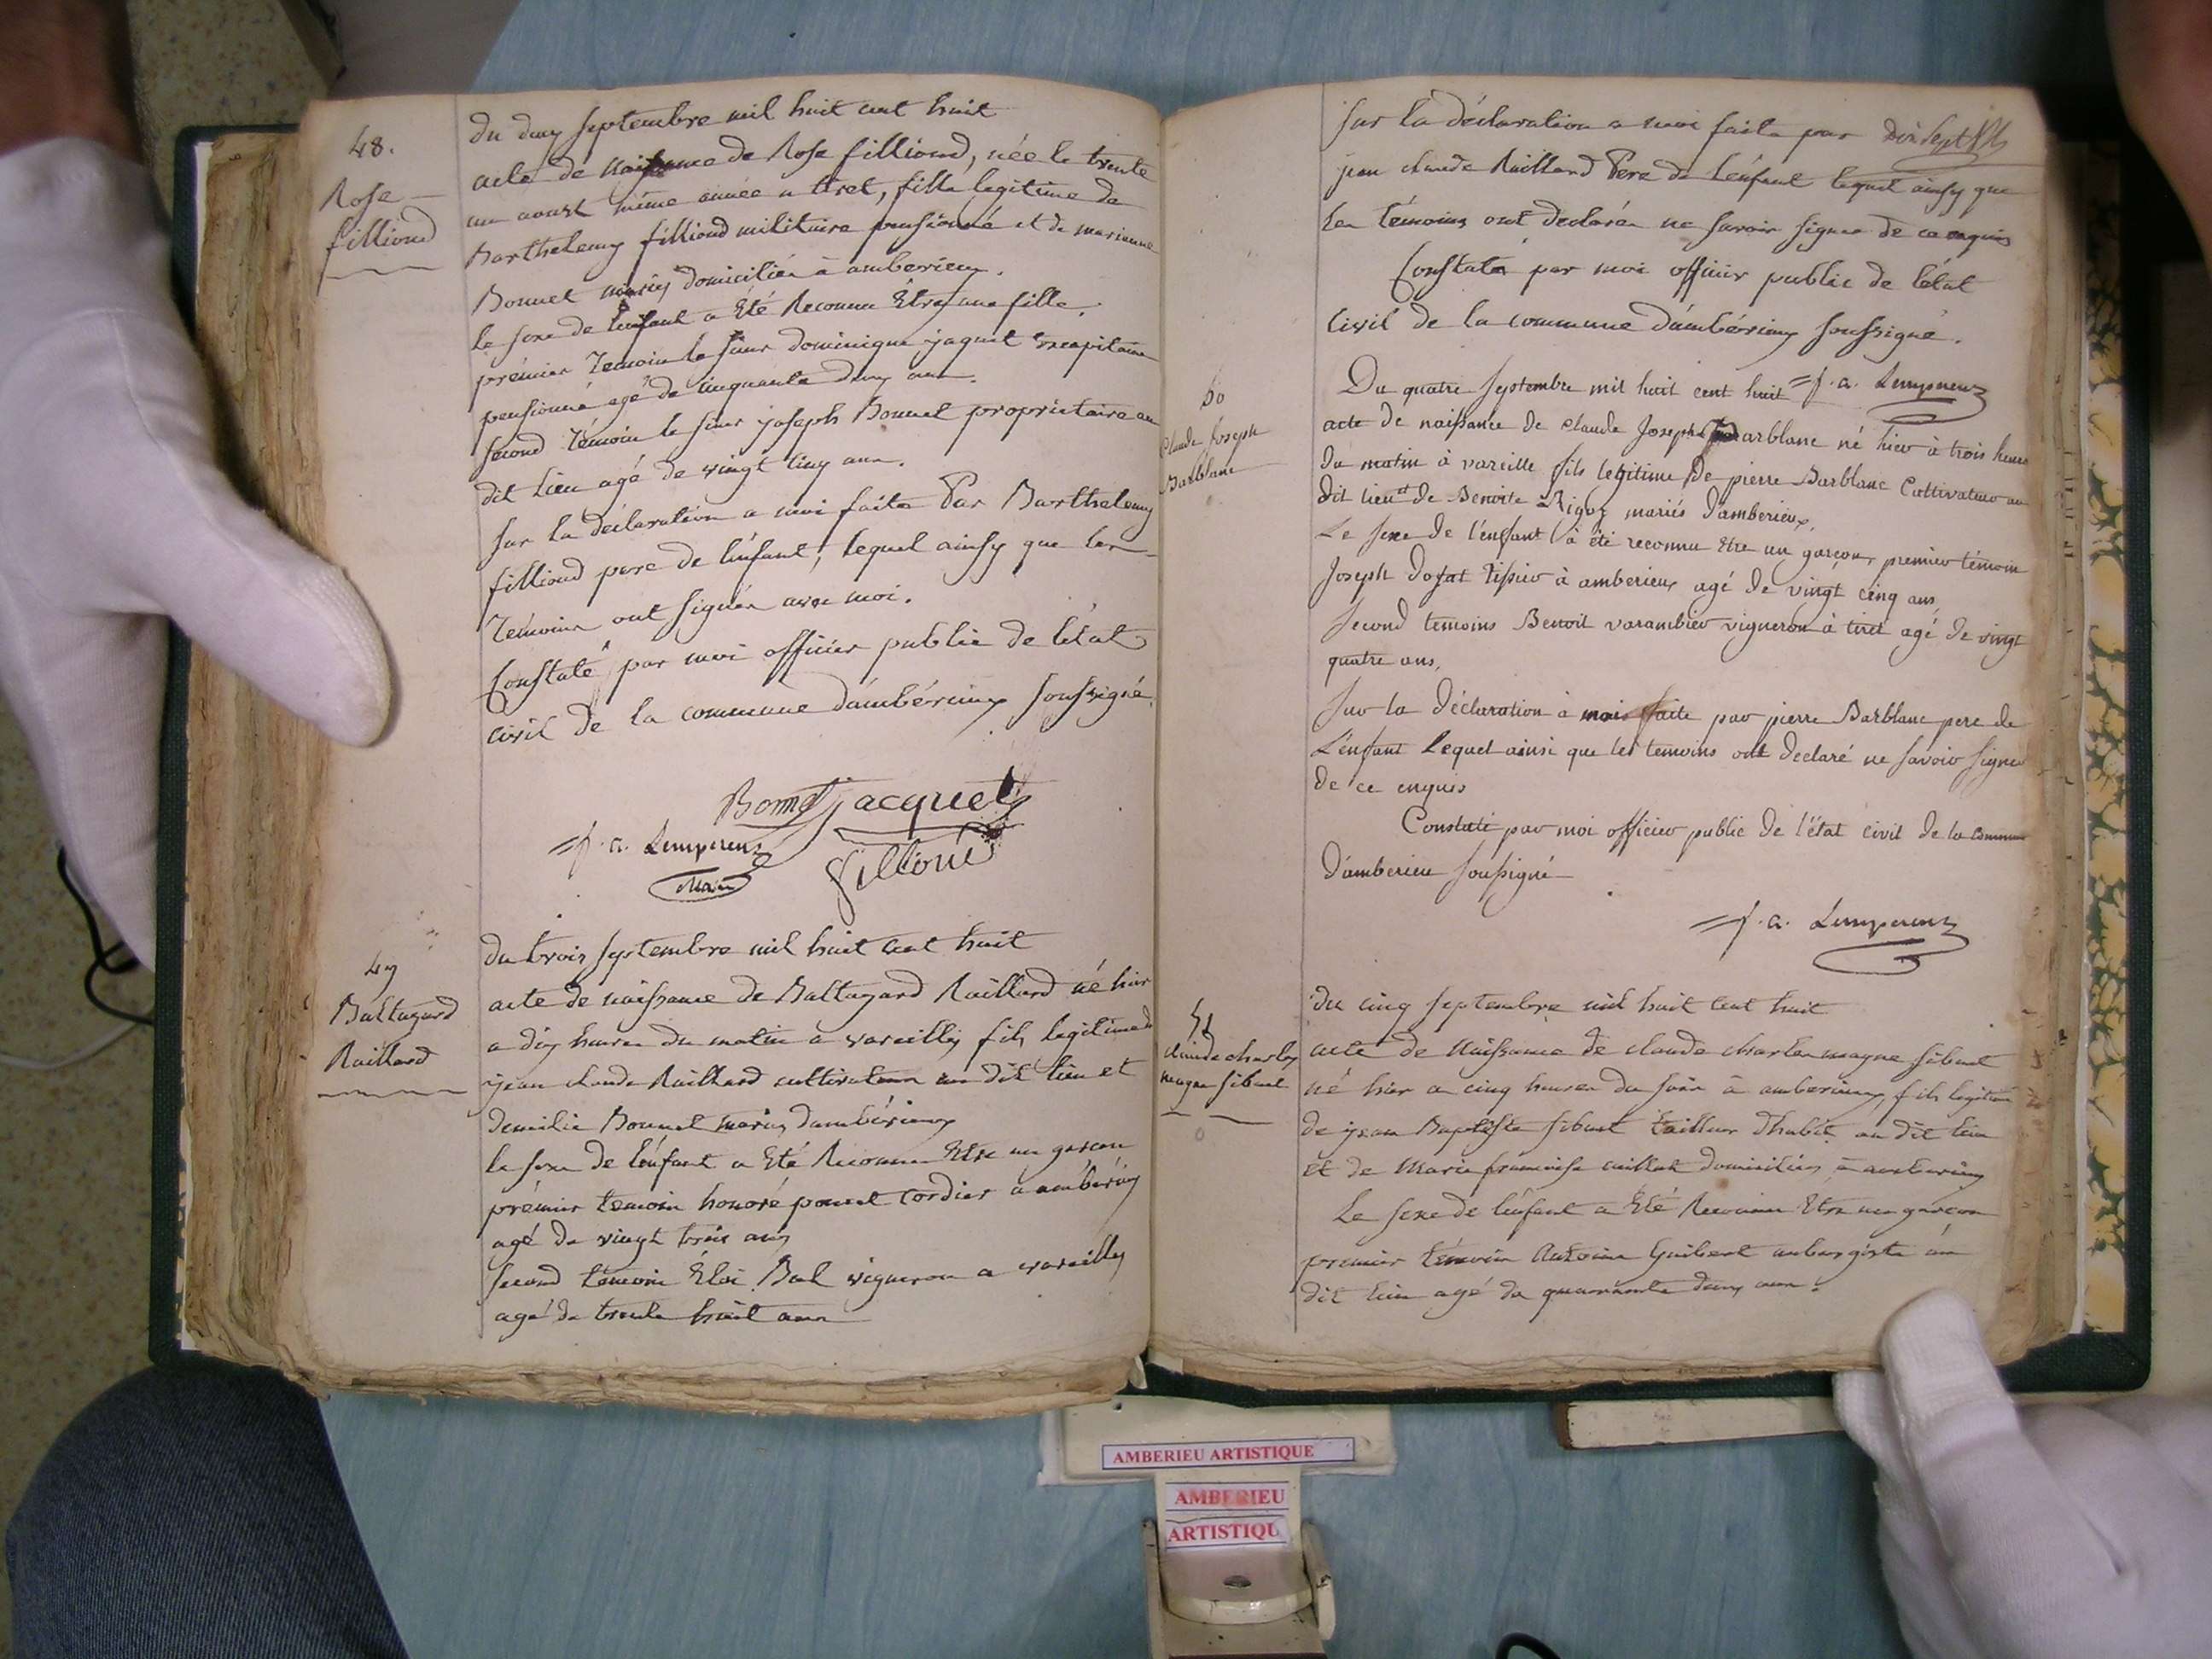 48.
Rose
filliond
du deux septembre mil huit cent huit
acte de naissance de Rose filliond, née le trente
un aoust même année a tiret, fille legitime de
Barthelemy filliond militaire pensionné et de marianne
Bonnet mariés domiciliés à amberieux.
le sexe de l'enfant a été Reconnu être une fille.
prémier témoin le sieur dominique jaquet excapitaine
pensionné agé de cinquante deux ans.
second témoin le sieur joseph Bonnet propriétaire au
dit lieu agé de vingt cinq ans.
sur la déclaration a moi faite Par Barthelemy
filliond pere de l'enfant, lequel ainsy que les
témoins ont signés avec moi.
Constaté par moi officier public de l'état
civil de la commune d'ambérieux soussigné.
Bonnet jacquet
f. a. Lempereur
Maire
fillond
49
Baltazard
Raillard
du trois septembre mil huit cent huit
acte de naissance de Baltazard Raillard né hier
a dix heures du matin a vareilles fils legitime de
jean claude Raillard cultivateur au dit lieu et
demilie Bonnet mariés dambérieux
le sexe de l'enfant a été Reconnu Etre un garçon
prémier temoin honoré poncet cordier a ambérieux
agé de vingt trois ans
second témoin Éloi Bal vigneron a vareilles
agé de trente huit ans
Sur la déclaration a moi faite par
jean claude Raillard Pere de l'énfant lequel ainsy que
les témoins ont declarés ne savoir signer de ce enquis
Constaté par moi officier public de l'état
civil de la commune d'ambérieux soussigné.
f. a. Lempereur
50
Claude Joseph
Barblanc
Du quatre septembre mil huit cent huit
acte de naissance de Claude Joseph Barblanc né hier à trois heures
du matin à vareille fils legitime de pierre Barblanc Cultivateur au
dit lieu et de Benoite Rigoz mariés d'amberieux,
Le sexe de l'enfant à été reconnu Etre un garçon, premier témoin
Joseph dofat tissier à amberieux agé de vingt cinq ans
Second temoins Benoit varambier vigneron à tiret agé de vingt
quatre ans,
Sur la déclaration à moi faite par pierre Barblanc pere de
L'enfant Lequel ainsi que les temoins ont declaré ne savoir signer
de ce enquis
Constaté par moi officier public de l'état civil de la commune
D'amberieu soussigné
f. a. Lempereur
51
claude charles
magne sibuet
du cinq septembre mil huit cent huit
acte de naissance de claude charlemagne sibuet
né hier a cinq heures du soir à amberieux, fils legitime
de jean Baptiste sibuet tailleur d'habit au dit lieu
et de Marie francoise domiciliés à amberieux
Le sexe de l'énfant a Eté Reconnu Etre un garçon
premier témoin Antoine Guibert aubergiste au
dit lieu agé de quarante deux ans.
AMBERIEU ARTISTIQUE
AMBERIEU
ARTISTIQU